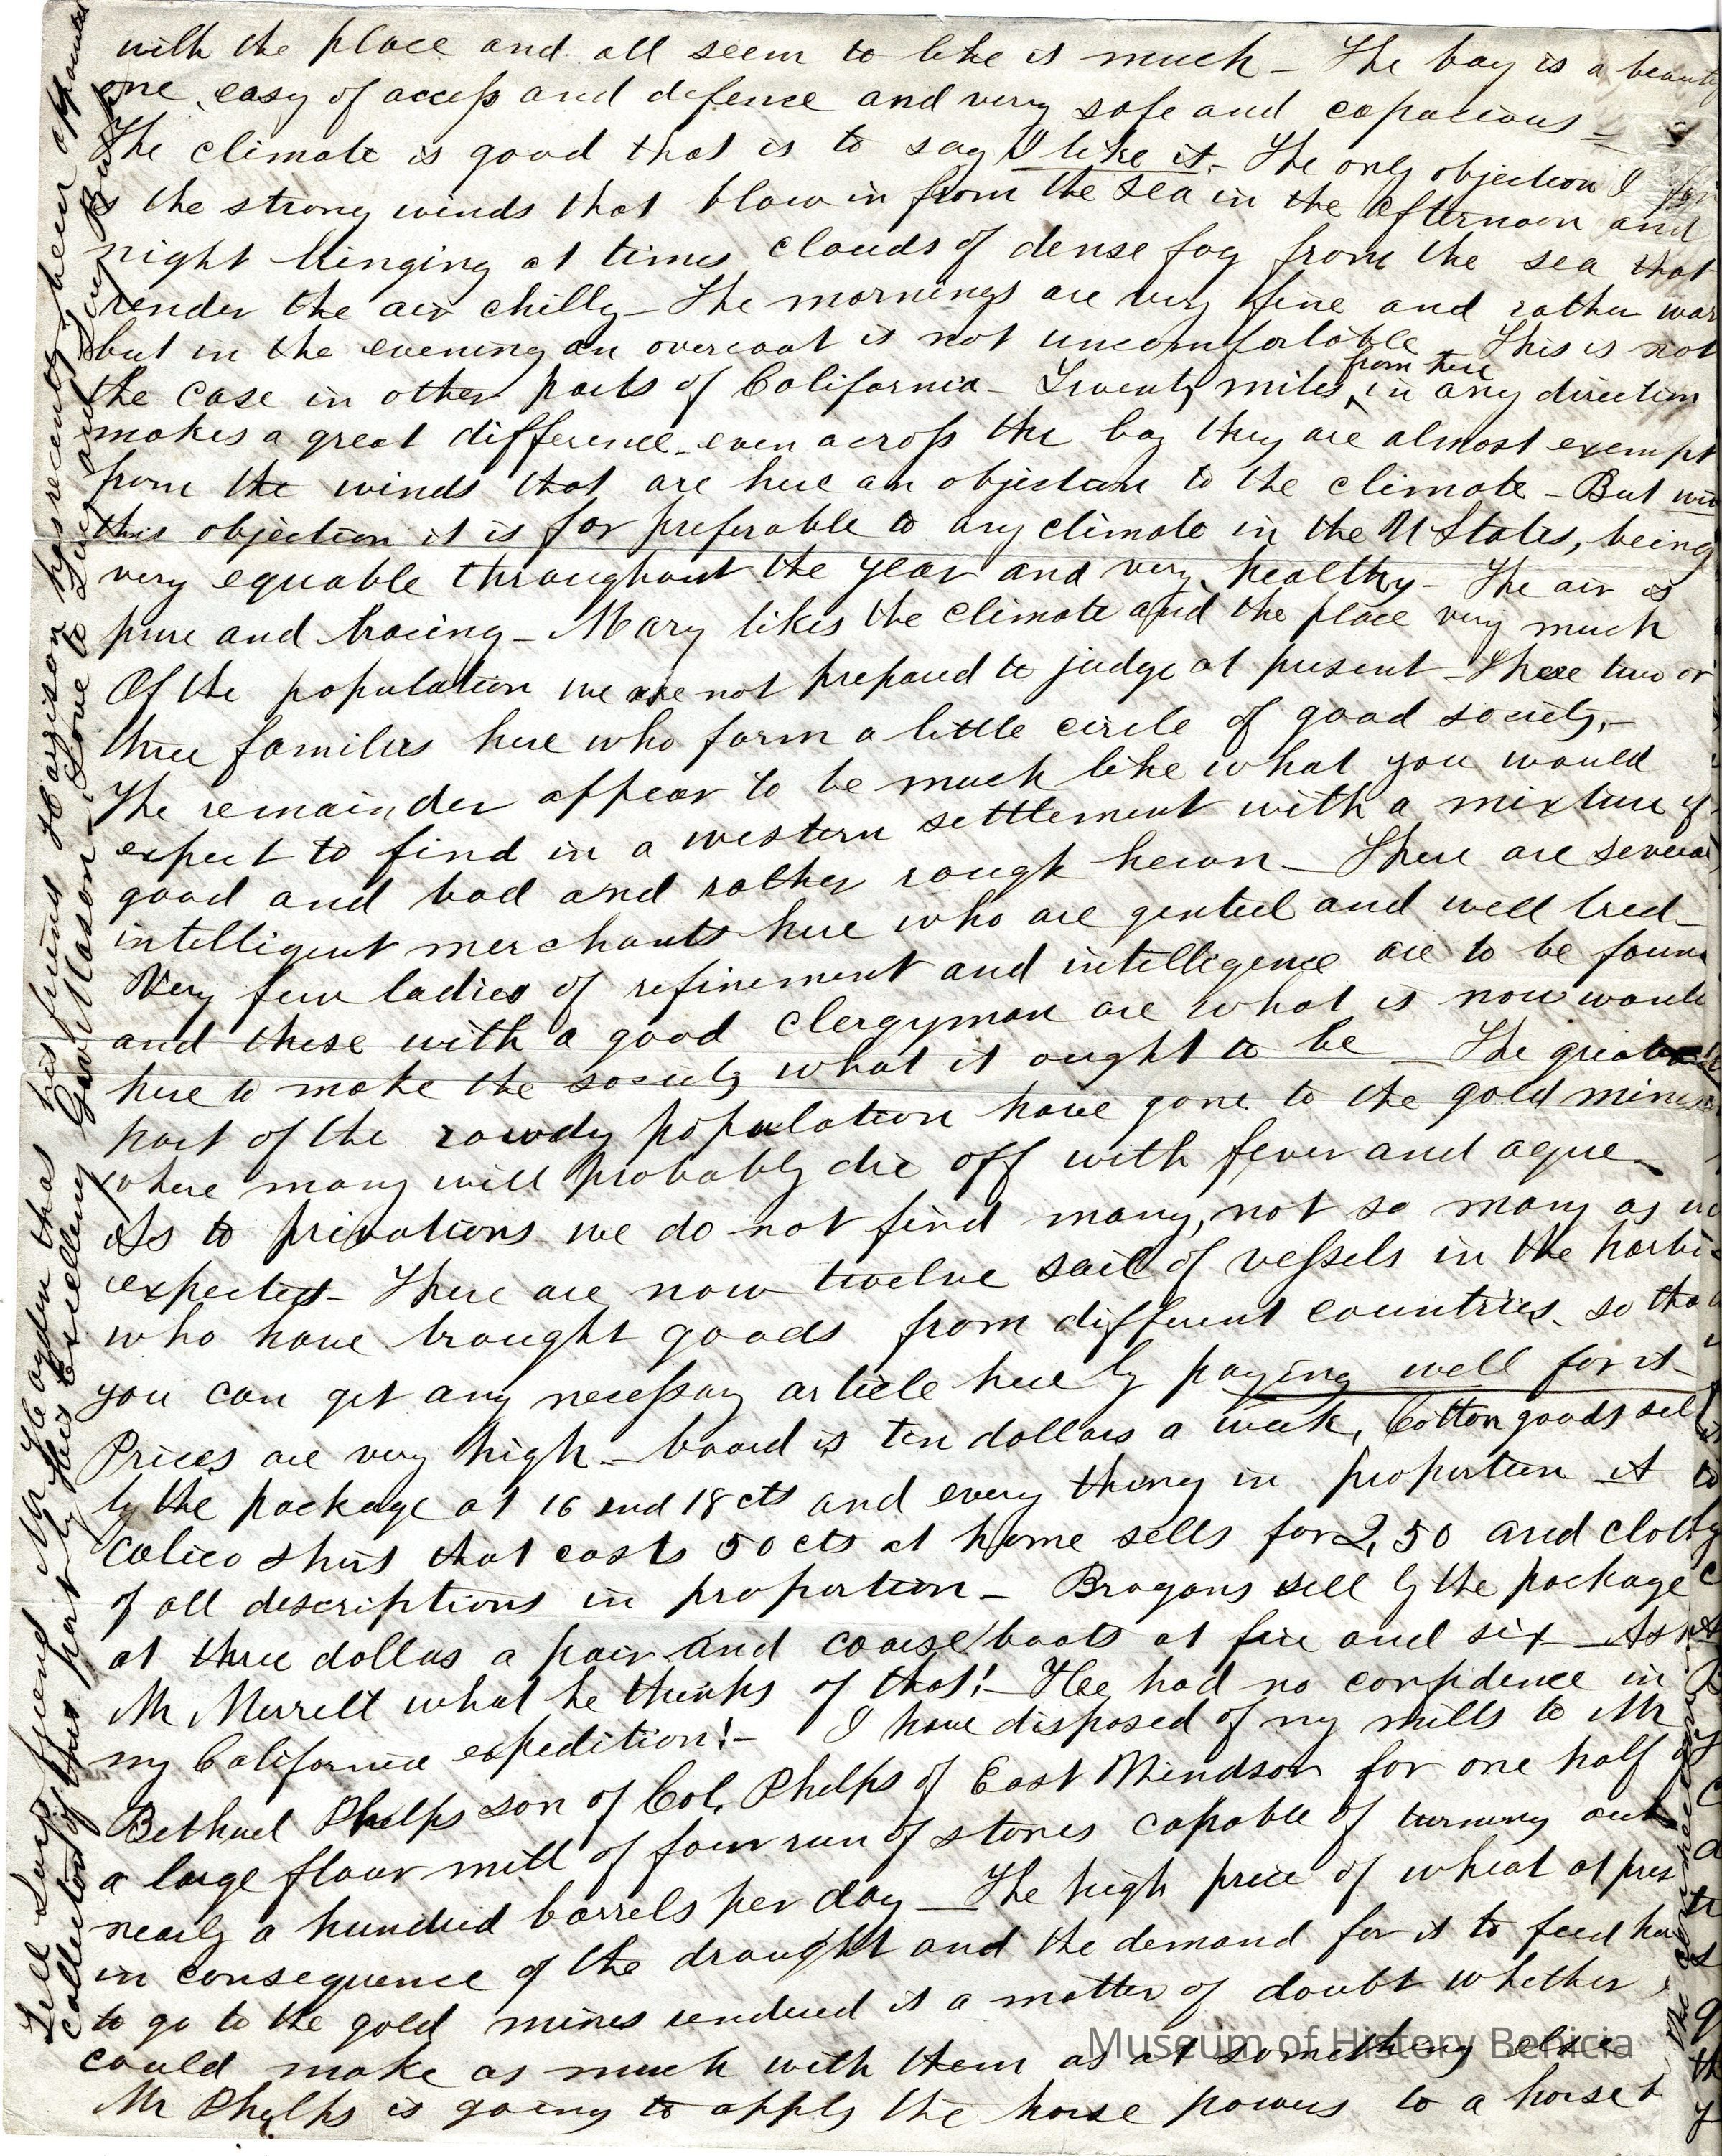 with the place and all seem to like it much - The bay is a beauti
one, easy of access and defence and very safe and capacious -
The climate is good that is to say I like it. The only objection I
is the strong winds that blow in from the sea in the afternoon and
night bringing at times clouds of dense fog from the sea that
render the air chilly - The mornings are very fine and rather war
but in the evening an overcoat is not uncomfortable - This is not
the case in other parts of California - Twenty miles from here in any direction
makes a great difference - even across the bay they are almost exempt
from the winds that are here an objection to the climate - But
this objection it is far preferable to any climate in the U States, being
very equable throughout the year and very healthy - The air is
pure and bracing - Mary likes the climate and the place very much
Of the population we are not prepared to judge at present - There two or
three families here who form a little circle of good society. -
The remainder appear to be much like what you would
expect to find in a western settlement with a mixture of
good and bad and rather rough hewn - There are several
intelligent merchants here who are genteel and well bred -
Very few ladies of refinement and intelligence are to be foun
and these with a good clergyman are what is now want
here to make the society what it ought to be - The greater
part of the rowdy population have gone to the gold mines
where many will probably die off with fever and ague -
As to privations we do not find many, not so many as
expected - There are now twelve sail of vessels in the harb
who have brought goods from different countries. so tha
you can get any necessary article here by paying well for it -
Prices are very high - board is ten dollars a week, Cotton goods sell
by the package at 16 and 18 cts and every thing in proportion - A
Calico shirt that costs 50 cts at home sells for 2,50 and cloth
of all descriptions in proportion - Brogans sell by the package
at three dollars a pair and coarse boots at five and six - Ask
Mr Merrell what he thinks of that! - Hee had no confidence in
my California expedition! - I have disposed of my mills to Mr
Bethuel Phelps son of Col. Phelps of East Windsor for one half of
a large flour mill of four run of stones capable of turning out
nearly a hundred barrels per day - The high price of wheat at pres
in consequence of the drought and the demand for it to feed
to go to the gold mines rendered it a matter of doubt whether
could make as much with them as at something else
Mr Phelps is going to apply the horse powers to a horse
Tell Lucy friend Mr Hagden that his friend Harrison has recently been appointed
Collector of this port by his Excellency Gov Mason - Love to Lucy and
Museum of History Benicia